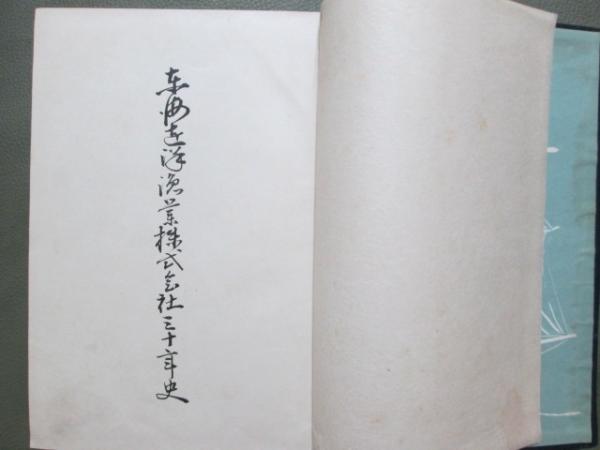 東海遠洋漁業株式会社三十年史